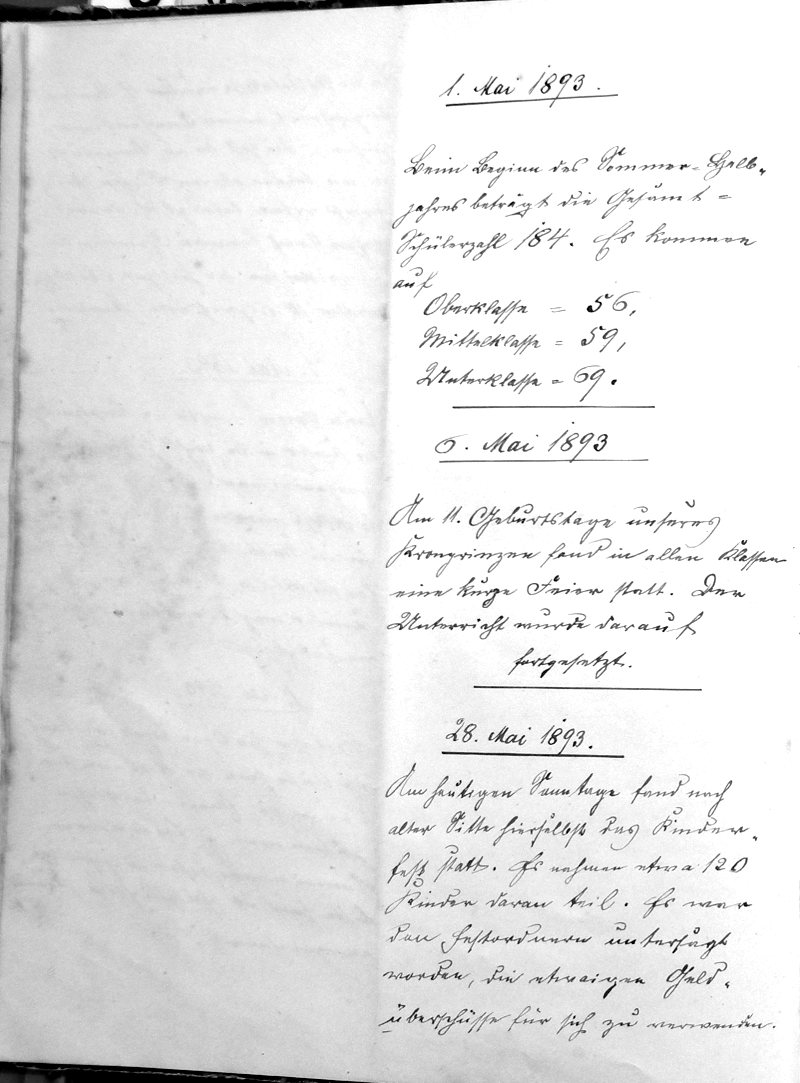 1. Mai 1893.
Beim Beginn des Sommer-Halb-
jahres beträgt die Gesamt-
Schülerzahl 184. Es kommen
auf
Oberklasse = 56,
Mittelklasse = 59,
Unterklasse = 69.
6. Mai 1893
Am 11. Geburtstage unseres
Kronprinzen fand in allen Klassen
eine kurze Feier statt. Der
Unterricht wurde darauf
fortgesetzt.
28. Mai 1893.
Am heutigen Sonntage fand nach
alter Sitte hierselbst das Kinder-
fest statt. Es nahmen etwa 120
Kinder daran teil. Es war
den Festordnern untersagt
worden, die etwaigen Geld-
überschüsse für sich zu verwenden.